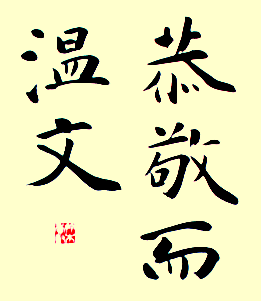 恭敬而
温文